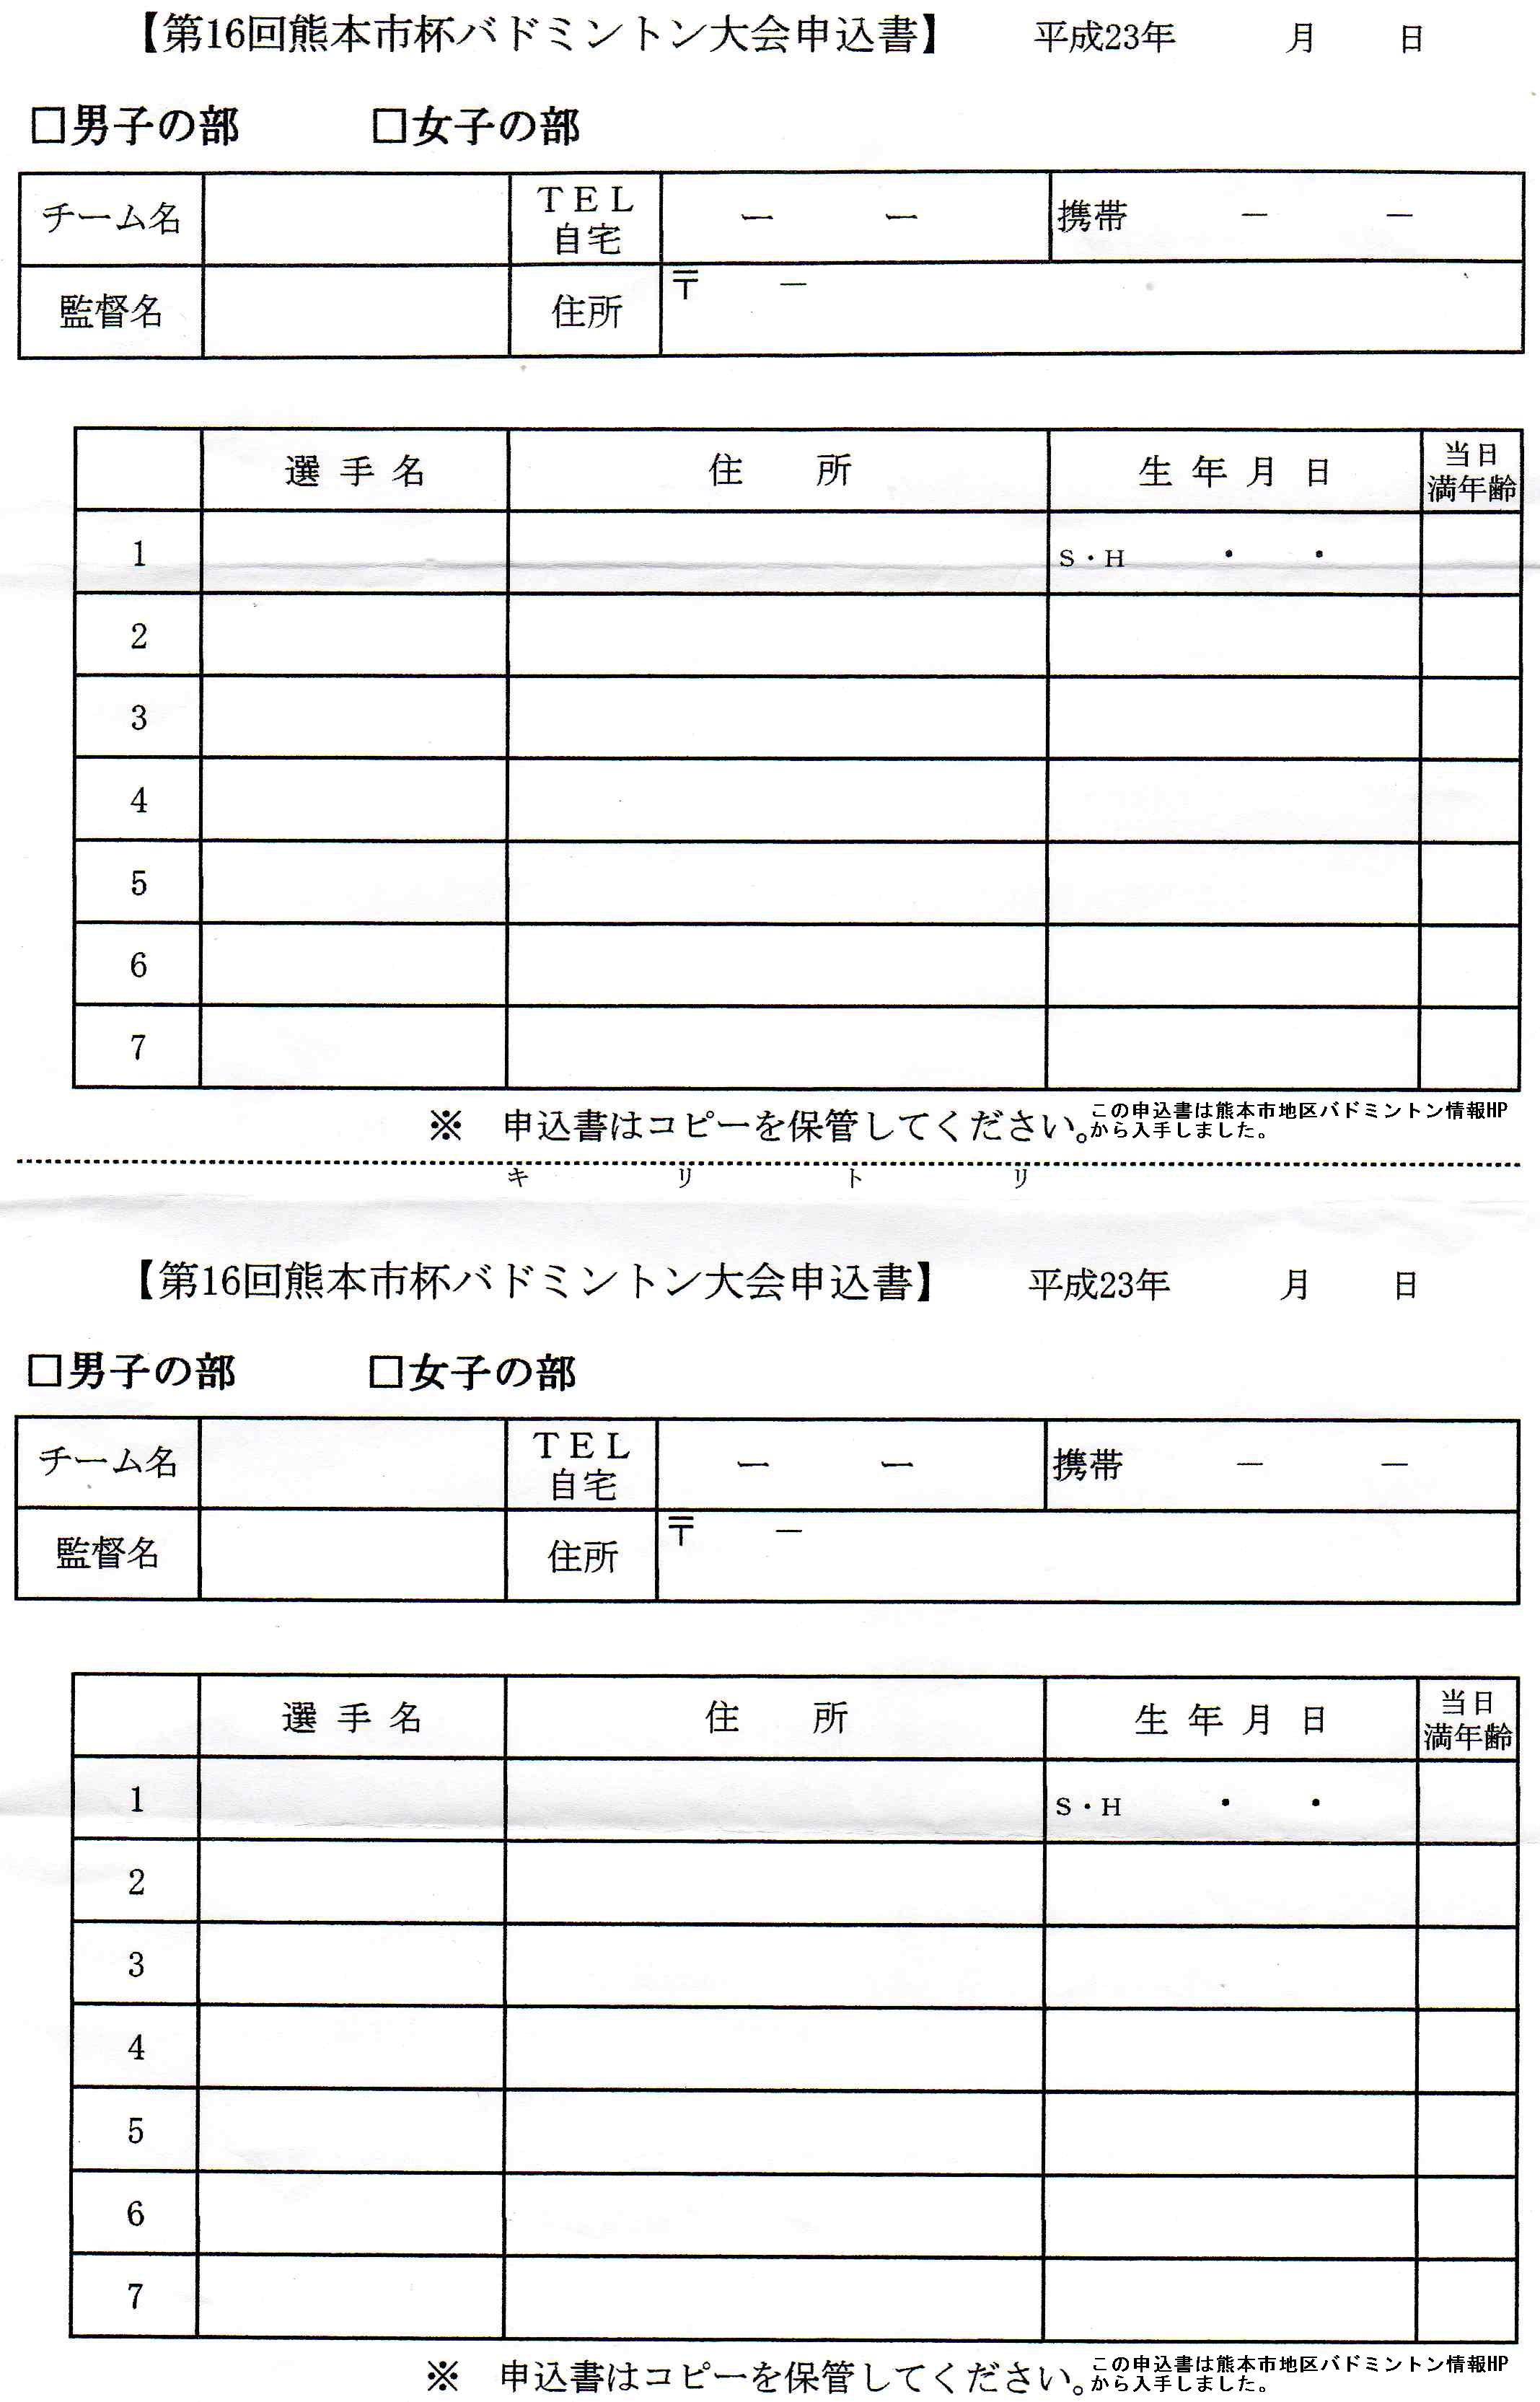 【第16回熊本市杯バドミントン大会申込書】 平成23年 月 日
□男子の部 □女子の部
チーム名 TEL 自宅 ー ー 携帯 － －
監督名 住所 〒 －
選手名 住所 生年月日 当日満年齢
1 S・H ・ ・
2
3
4
5
6
7
※ 申込書はコピーを保管してください。
この申込書は熊本市地区バドミントン情報HP
から入手しました。
キリトリ
【第16回熊本市杯バドミントン大会申込書】 平成23年 月 日
□男子の部 □女子の部
チーム名 TEL 自宅 ー ー 携帯 － －
監督名 住所 〒 －
選手名 住所 生年月日 当日満年齢
1 S・H ・ ・
2
3
4
5
6
7
※ 申込書はコピーを保管してください。
この申込書は熊本市地区バドミントン情報HP
から入手しました。